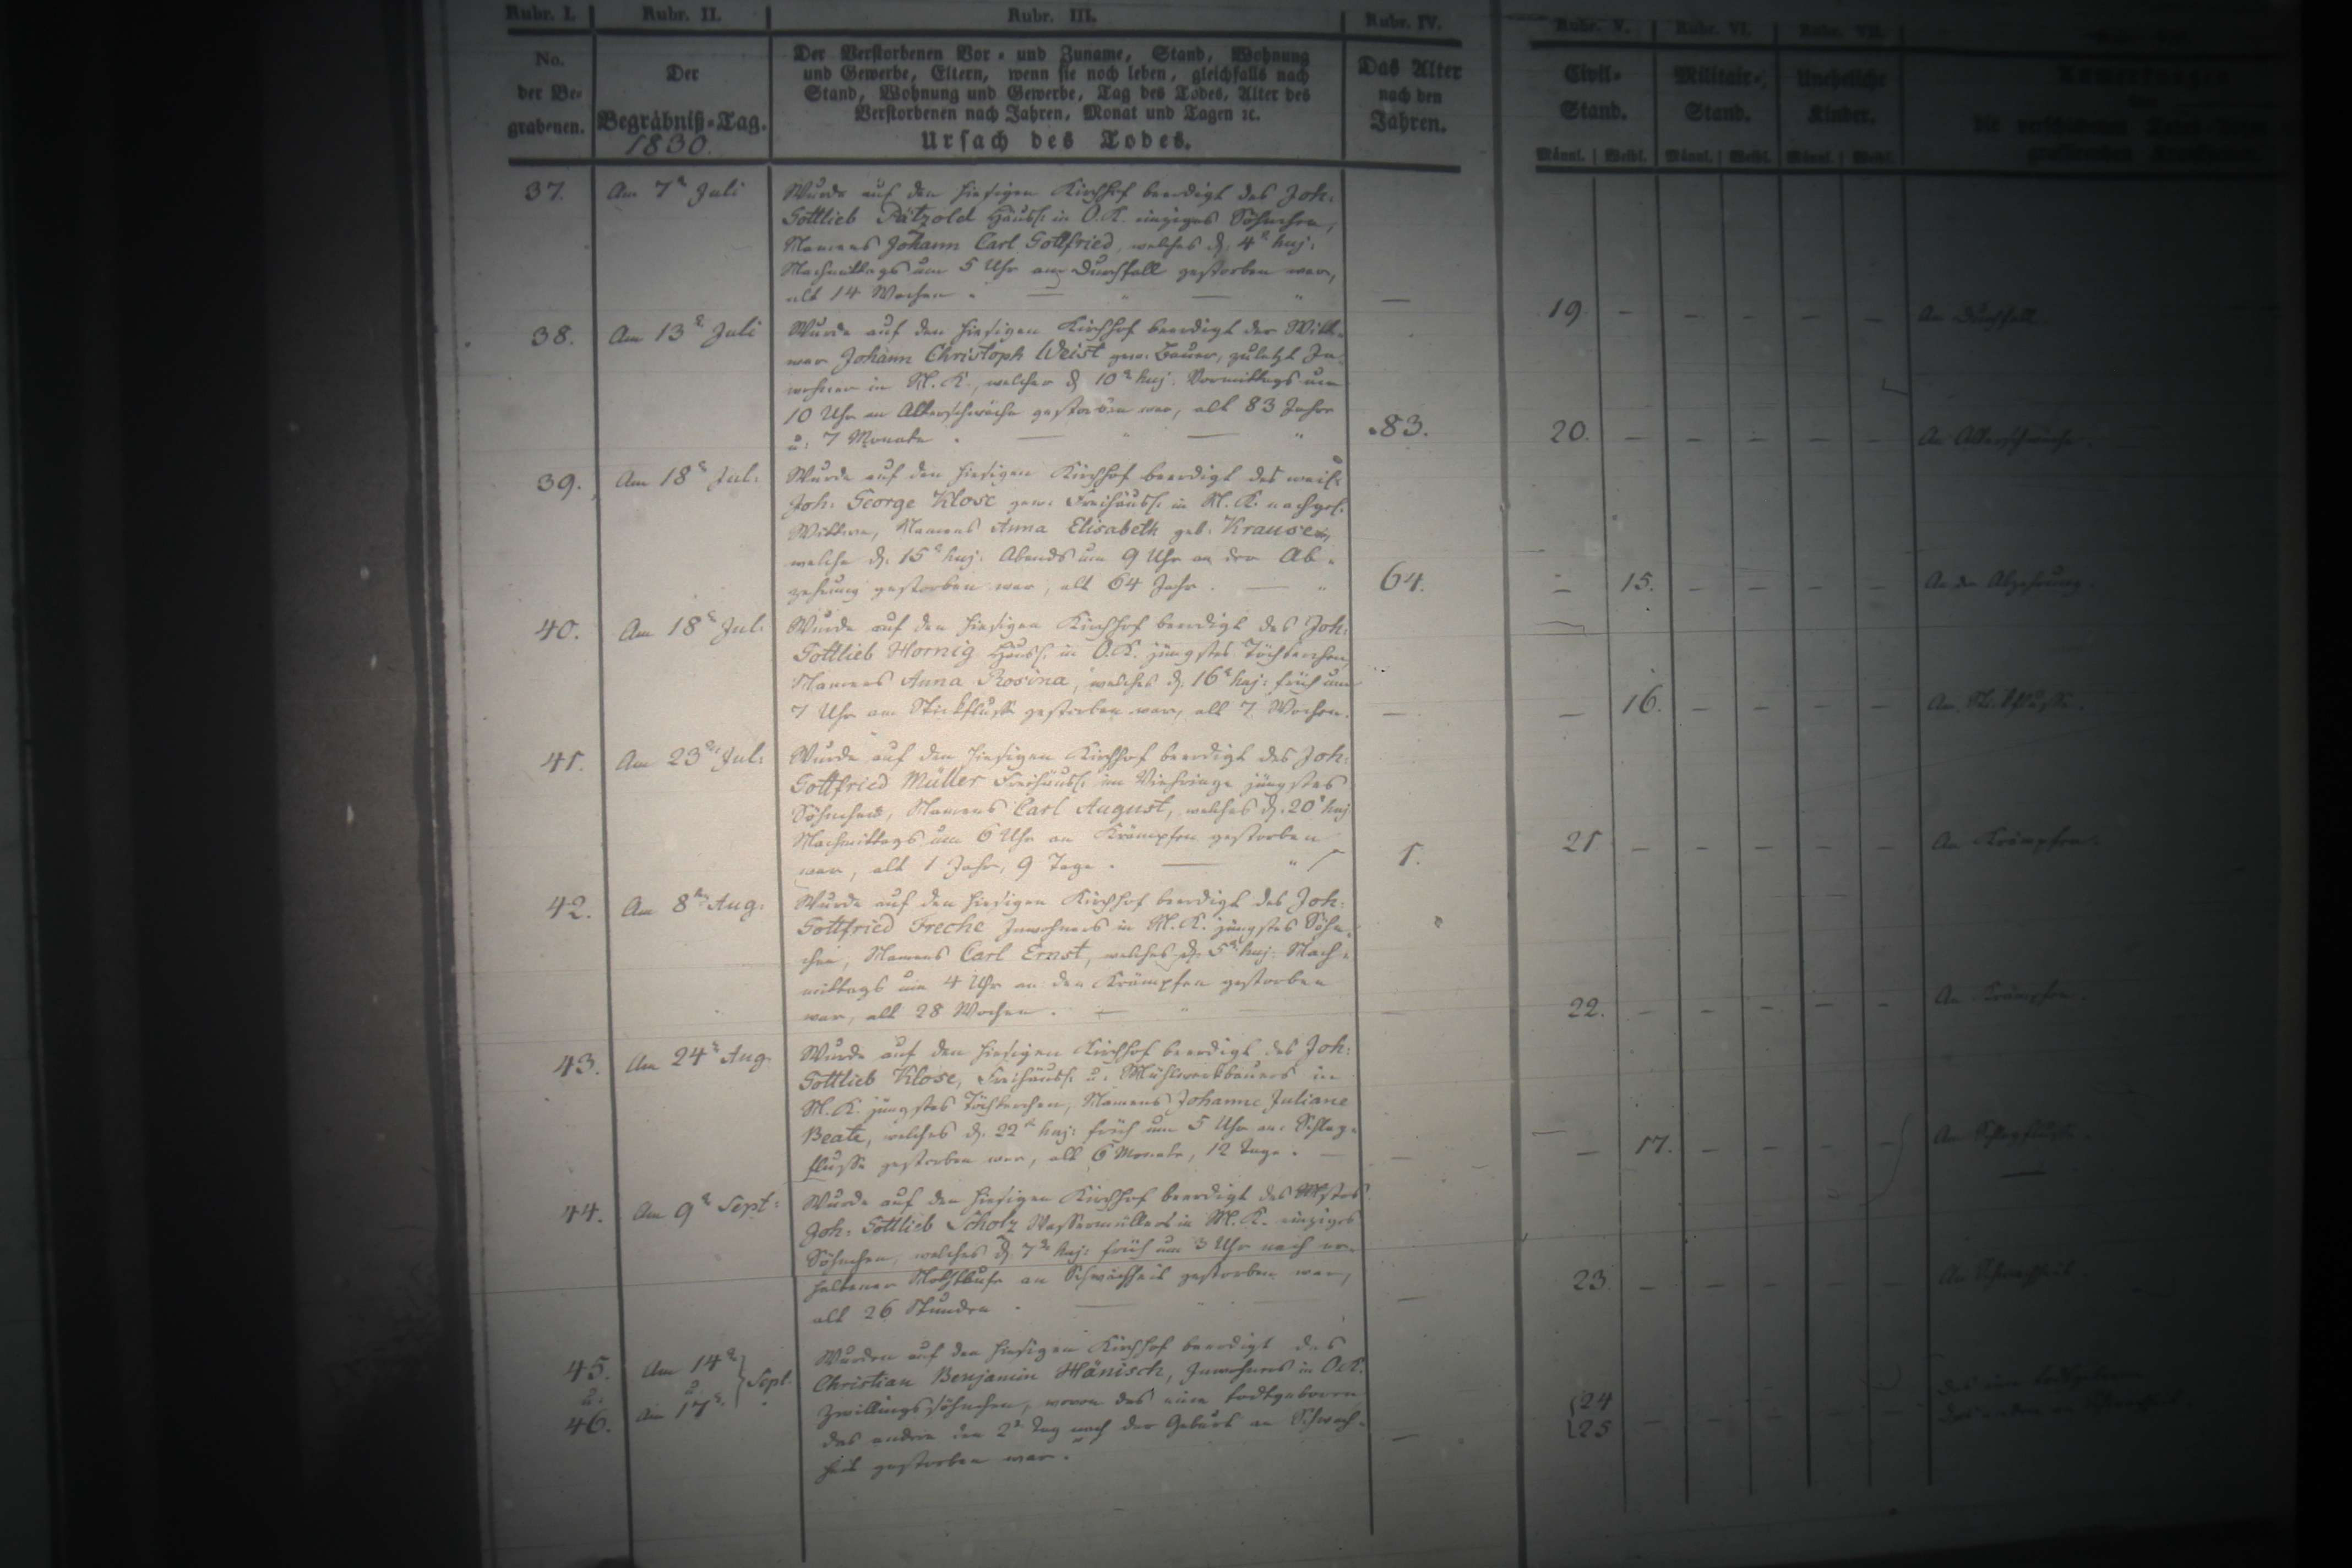 Rubr. I. Rubr. II. Rubr. III. Rubr. IV. Rubr. V. Rubr. VI. Rubr. VII.
No.
der Be-
grabenen.
Der
Begräbniß-Tag.
1830.
Der Verstorbenen Vor- und Zuname, Stand, Wohnung
und Gewerbe, Eltern, wenn sie noch leben, gleichfalls nach
Stand, Wohnung und Gewerbe, Tag des Todes, Alter des
Verstorbenen nach Jahren, Monat und Tagen ꝛc.
Ursach des Todes.
Das Alter
nach den
Jahren.
Civil-
Stand.
Militair-
Stand.
Uneheliche
Kinder.
Männl. Weibl. Männl. Weibl. Männl. Weibl.
37. Am 7t Juli Wurde auf den hiesigen Kirchhof beerdigt des Joh:
Gottlieb Pätzold Häusl: in O.K. einziges Söhnchen,
Namens Johann Carl Gottfried, welches d. 4t huj:
Nachmittags um 5 Uhr am Durchfall gestorben war,
alt 14 Wochen. — 19. — — — — — An Durchfall.
38. Am 13t Juli Wurde auf den hiesigen Kirchhof beerdigt der Witt-
wer Johann Christoph Weist gew. Bauer, zuletzt In-
wohner in N.K., welcher d 10t huj. Vormittags um
10 Uhr an Altersschwäche gestorben war, alt 83 Jahre
u: 7 Monate. 83. 20. — — — — — An Altersschwäche.
39. Am 18t Jul: Wurde auf den hiesigen Kirchhof beerdigt des weil:
Joh: George Klose gew. Freihäusl: in N.K. nachgel.
Wittwe, Namens Anna Elisabeth geb. Krause,
welche d. 15t huj: Abends um 9 Uhr an der Ab-
zehrung gestorben war, alt 64 Jahr. 64. — 15. — — — — An der Abzehrung.
40. Am 18t Jul: Wurde auf den hiesigen Kirchhof beerdigt des Joh:
Gottlieb Hornig Häusl: in O.K. jüngstes Töchterchen,
Namens Anna Rosina, welches d. 16t huj: früh um
7 Uhr am Stickflusse gestorben war, alt 7 Wochen. — — 16. — — — — Am Stickflusse.
41. Am 23t Jul: Wurde auf den hiesigen Kirchhof beerdigt des Joh:
Gottfried Müller Freihäusl: im Viehringe jüngstes
Söhnchen, Namens Carl August, welches d. 20t huj
Nachmittags um 6 Uhr an Krämpfen gestorben
war, alt 1 Jahr, 9 Tage. 1. 21. — — — — — An Krämpfen.
42. Am 8ten Aug: Wurde auf den hiesigen Kirchhof beerdigt des Joh:
Gottfried Freche Inwohners in N.K. jüngstes Söhn-
chen, Namens Carl Ernst, welches d. 5t huj. Nach-
mittags um 4 Uhr an den Krämpfen gestorben
war, alt 28 Wochen. — 22. — — — — — An Krämpfen.
43. Am 24t Aug. Wurde auf den hiesigen Kirchhof beerdigt des Joh:
Gottlieb Klose, Freihäusl: u. Mühlwerkbauers in
N.K. jüngstes Töchterchen, Namens Johanne Juliane
Beate, welches d. 22t huj: früh um 5 Uhr am Schlag-
flusse gestorben war, alt 6 Monate, 12 Tage. — — 17. — — — — Am Schlagflusse.
44. Am 9t Sept: Wurde auf den hiesigen Kirchhof beerdigt des Mstrs
Joh: Gottlieb Scholz Wassermüllers in N.K. einziges
Söhnchen, welches d. 7t huj: früh um 3 Uhr nach er-
haltener Nothtaufe an Schwachheit gestorben war,
alt 26 Stunden. — 23. — — — — — An Schwachheit.
45. u: 46. Am 14t u: Am 17t Sept. Wurden auf den hiesigen Kirchhof beerdigt des
Christian Benjamin Hänisch, Inwohners in O.K.
Zwillingssöhnchen, wovon das eine todtgeboren
das andere den 2t Tag nach der Geburt an Schwach-
heit gestorben war. — 24 25 — — — — — das eine todtgeboren
das andere an Schwachheit.